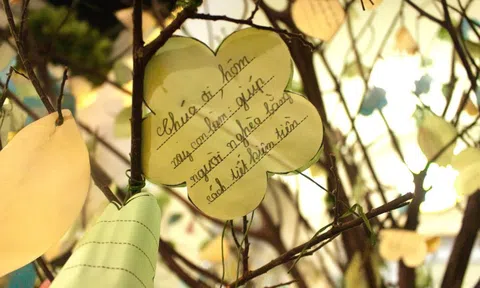 Chúa ơi, hôm
nay con làm: giúp
người nghèo bằng
cách tiết kiệm tiền.